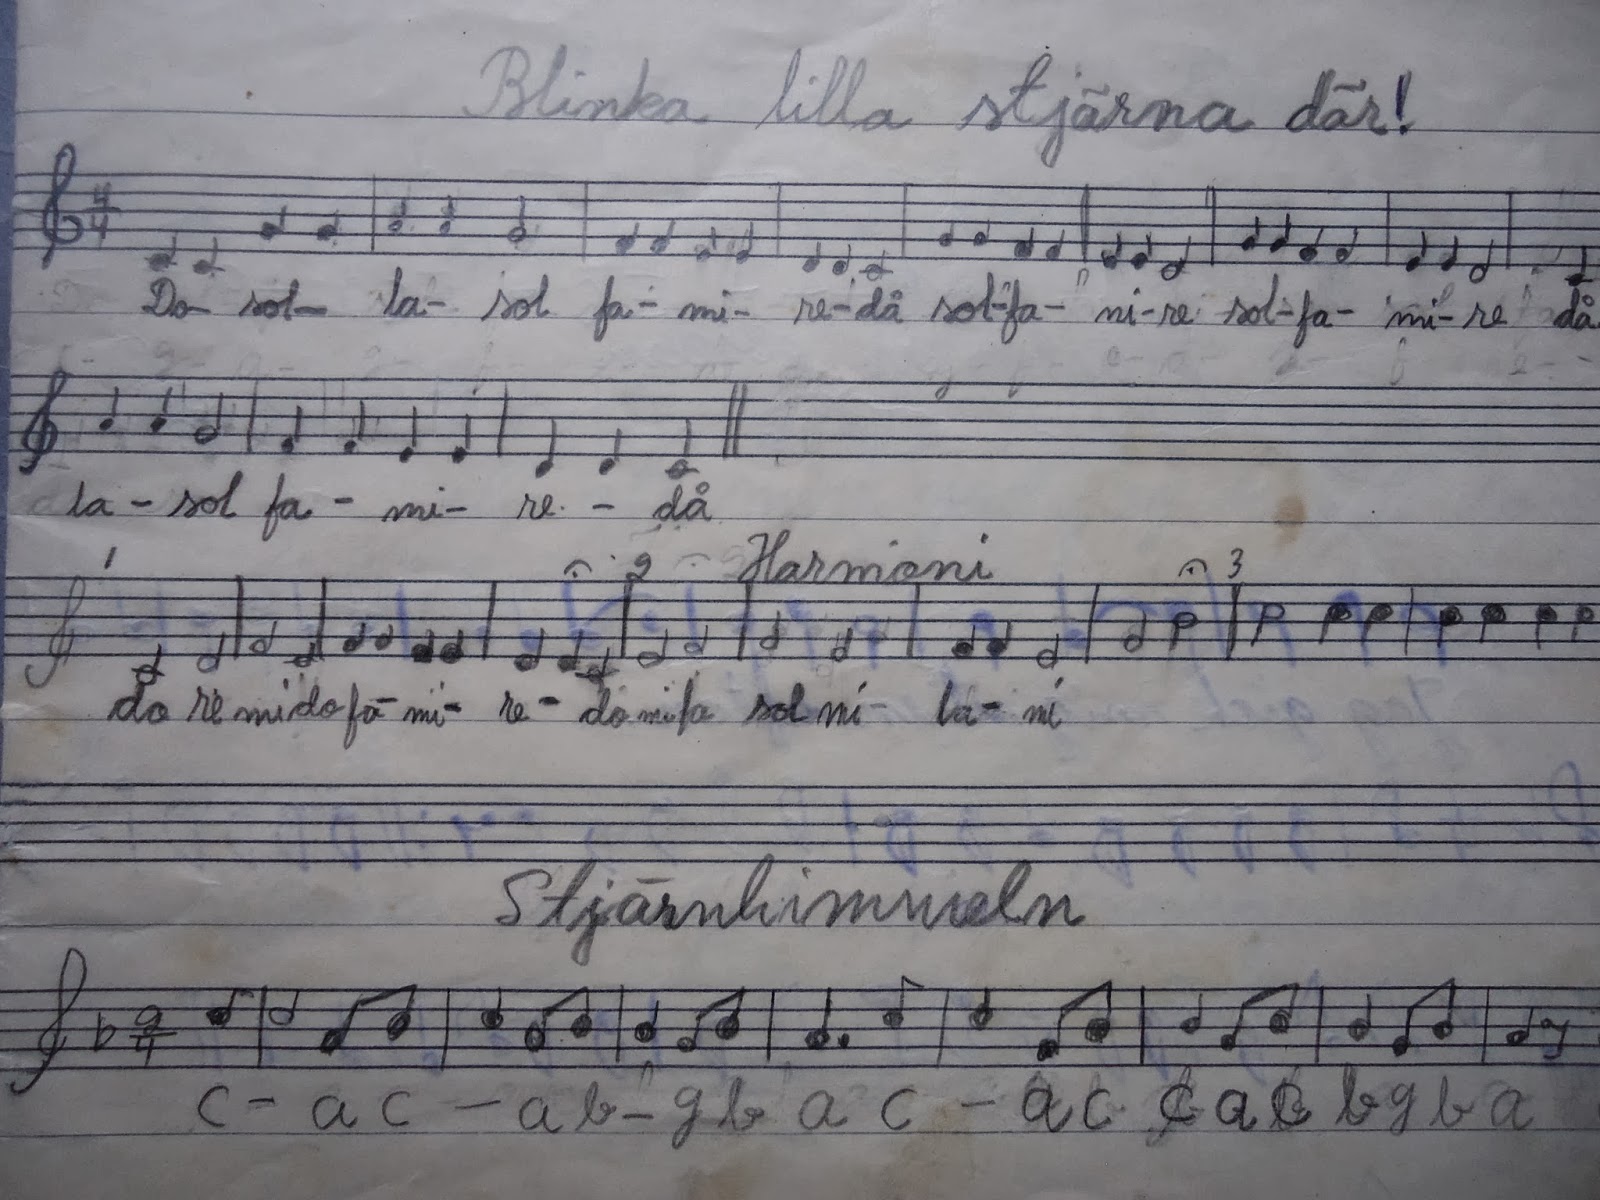 Blinka lilla stjärna där!
4/4
Do- sol- la- sol fa- mi- re-då sol-fa- mi-re sol-fa- mi-re då
la- sol fa- mi- re- då
1 2 Harmoni 3
do re mi do fa- mi- re- do mi fa sol mi- la- mi
Stjärnhimmeln
c- a c - a b- g b a c - a c c a c b g b a